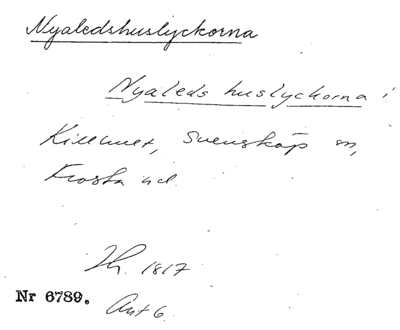 Nyaledshuslyckorna
Nyaleds huslyckorna i
Killhult, Svensköp sn,
Frosta hd.
Lh. 1817
Nr 6789. Akt 6